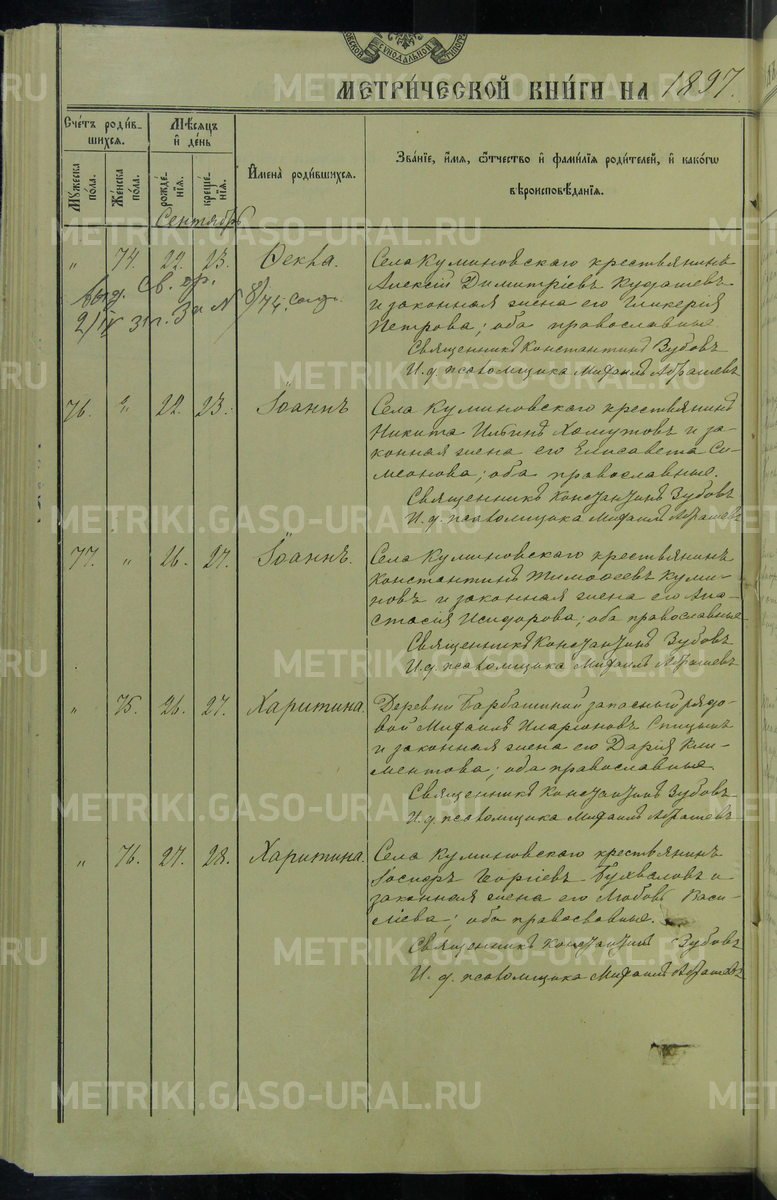 МЕТРИ́ЧЕСКОЙ КНИ́ГИ НА 1897.
Сче́тъ роди́в-
шихся.
Мѣ́сяцъ
и́ де́нь
И҆мена̀ роди́вшихся.
Зва́нїе, и҆́мя, ѻ҆́тчество и҆ фами́лїя роди́телей, и҆ како́гѡ
вѣроисповѣ́данїя.
Му́жеска
по́ла.
Же́нска
по́ла.
рожде́-
нїя.
креще́-
нїя.
Сентябрь
„ 74. 22. 23. Ѳекла.
Села Куминовскаго крестьянинъ
Алексій Димитріевъ Кудашевъ
и законная жена его Гликерія
Петрова; оба православные
Священникъ Константинъ Зубовъ
И. д. псаломщика Михаилъ Абрашевъ
выд. св. гр.
2/IV 31 г. За № 8/74.
76. „ 22. 23. Іоаннъ
Села Куминовскаго крестьянинъ
Никита Ильинъ Хомутовъ и за-
конная жена его Елисавета Си-
меонова; оба православные.
Священникъ Константинъ Зубовъ
И. д. псаломщика Михаилъ Абрашевъ
77. „ 26. 27. Іоаннъ.
Села Куминовскаго крестьянинъ
Константинъ Тимоѳеевъ Куми-
новъ и законная жена его Ана-
стасія Исидорова; оба православные
Священникъ Константинъ Зубовъ
И. д. псаломщика Михаилъ Абрашевъ
„ 75. 26. 27. Харитина.
Деревни Барбашиной запасный рядо-
вой Михаилъ Иларіоновъ Спицынъ
и законная жена его Дарія Кли-
ментова; оба православные
Священникъ Константинъ Зубовъ
И. д. псаломщика Михаилъ Абрашевъ
„ 76. 27. 28. Харитина.
Села Куминовскаго крестьянинъ
Іосифъ Георгіевъ Бухваловъ и
законная жена его Любовь Васи-
ліева; оба православные.
Священникъ Константинъ Зубовъ
И. д. псаломщика Михаилъ Абрашевъ
METRIKI.GASO-URAL.RU